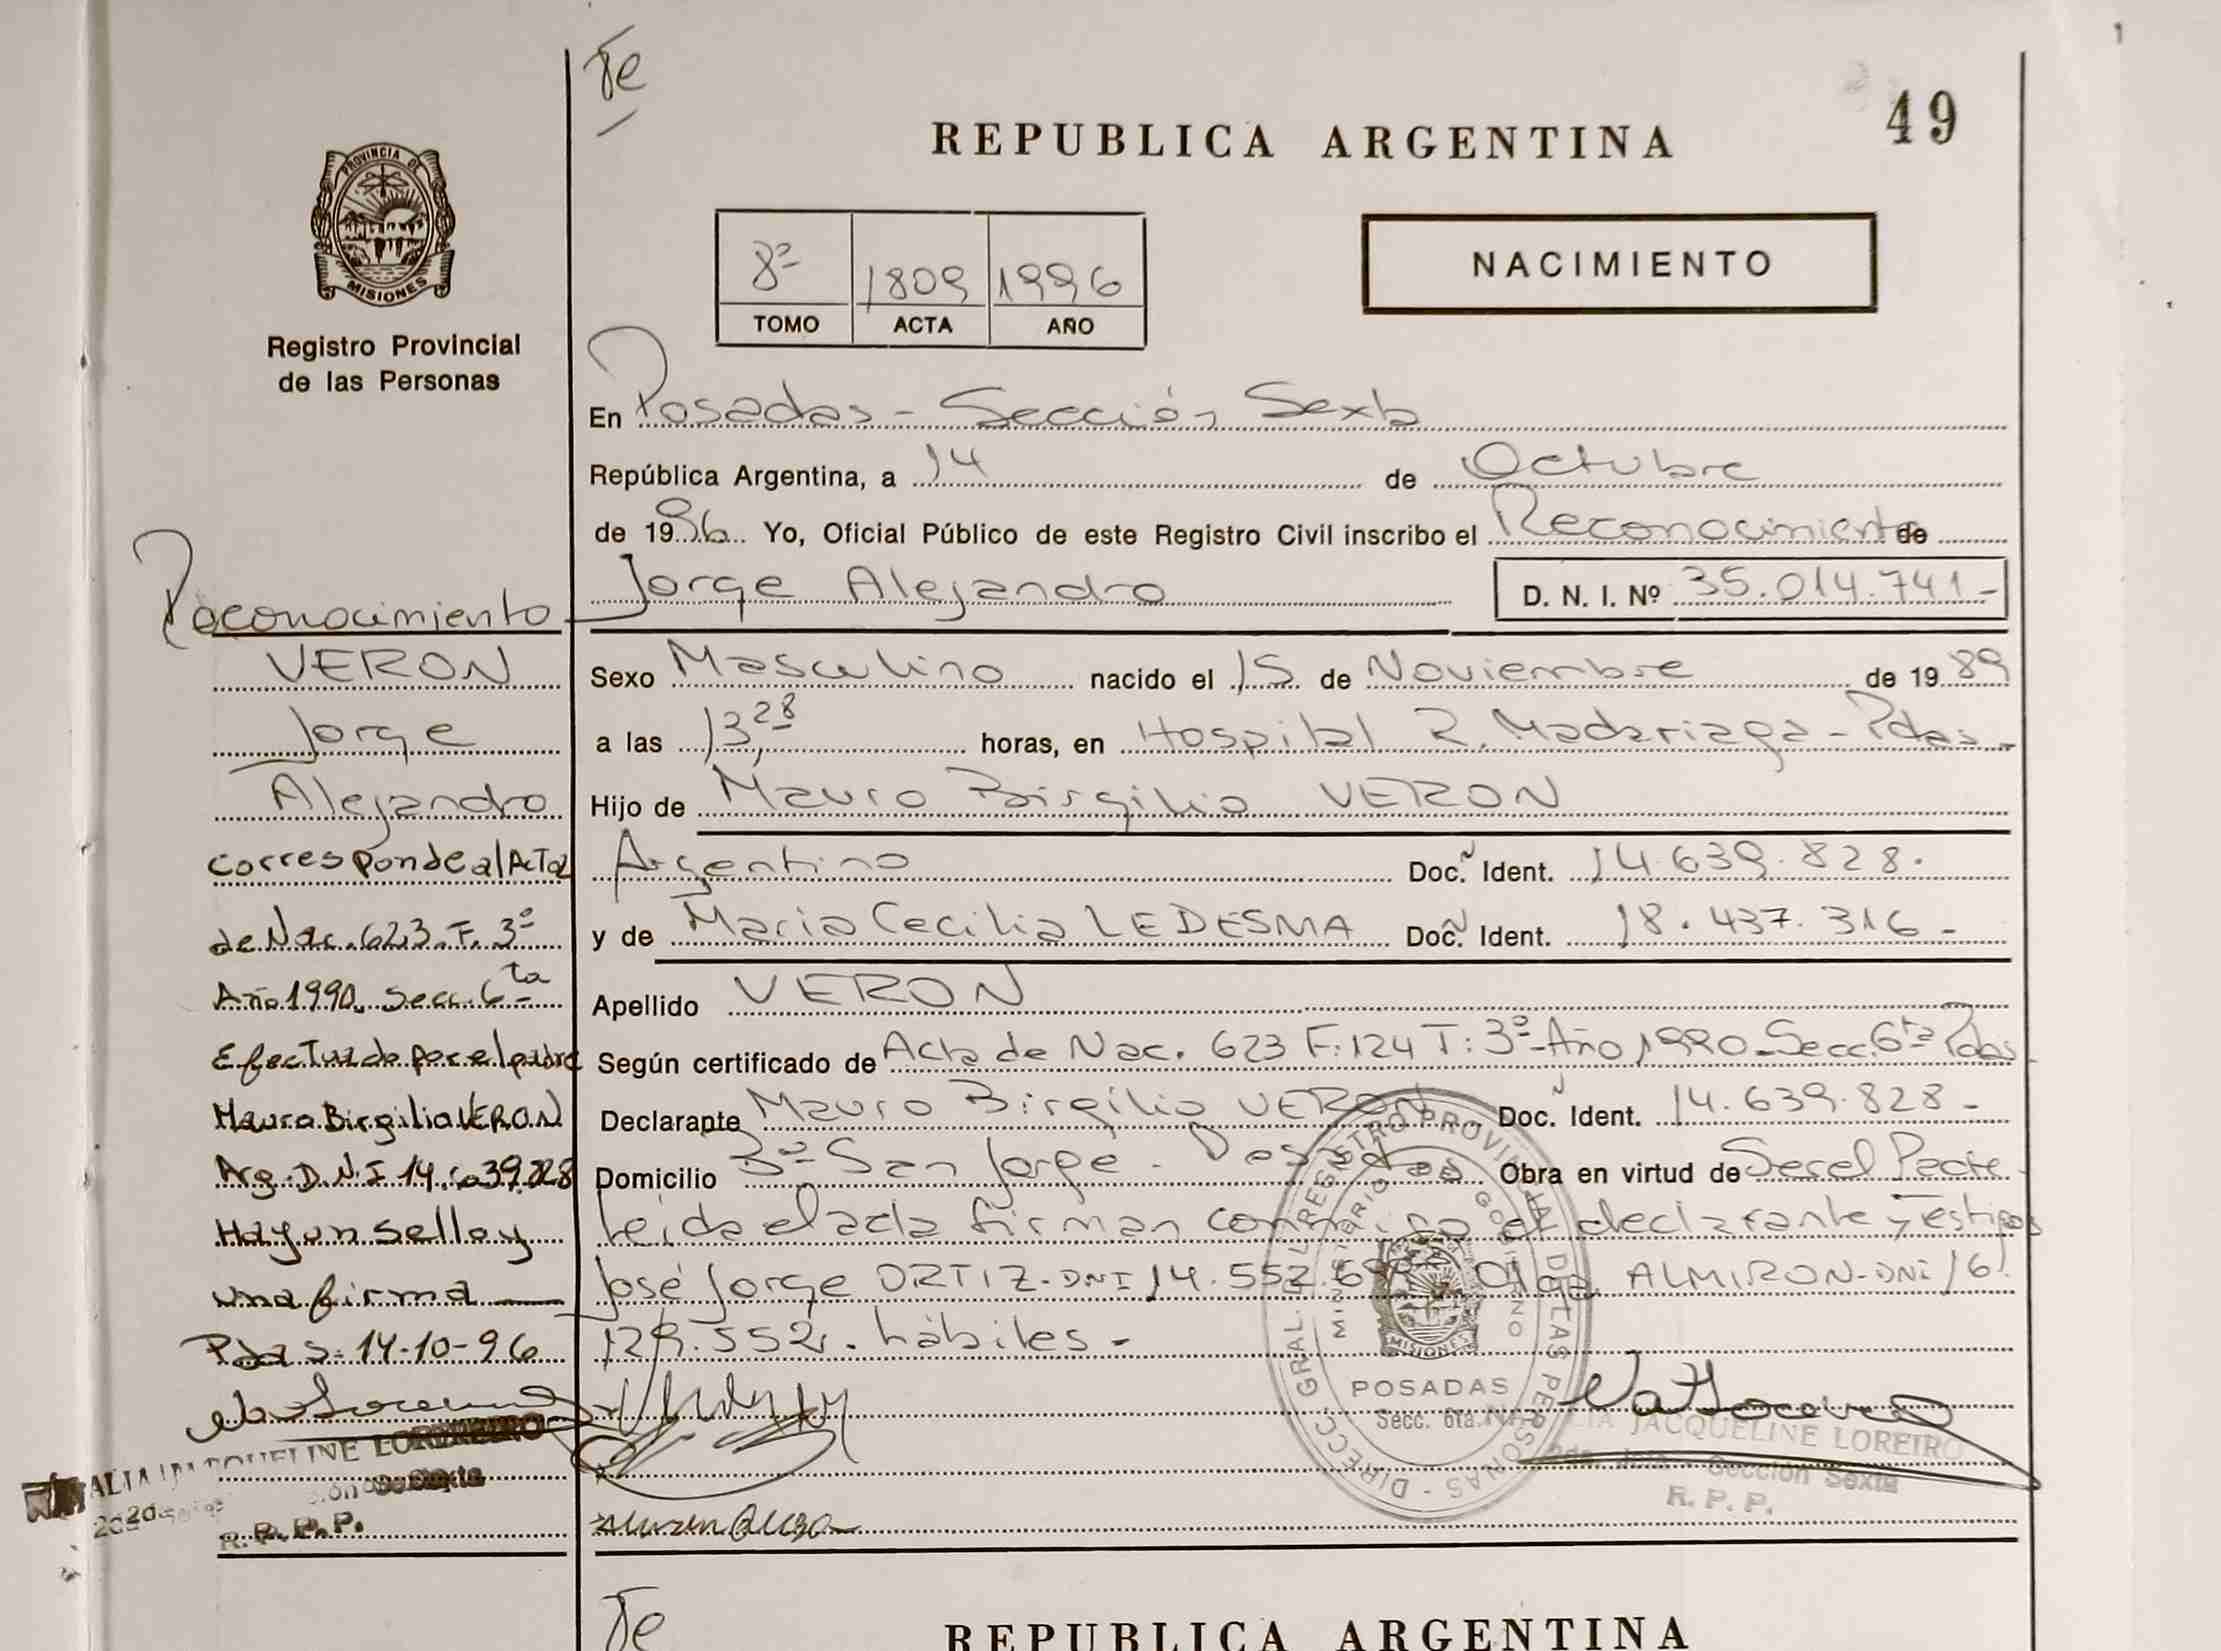 Te
REPUBLICA ARGENTINA
49
PROVINCIA DE
MISIONES
Registro Provincial
de las Personas
8º 1809 1996
TOMO ACTA AÑO
NACIMIENTO
En Posadas - Sección Sexta
República Argentina, a 14 de Octubre
de 1996. Yo, Oficial Público de este Registro Civil inscribo el Reconocimiento de
Jorge Alejandro D. N. I. Nº 35.014.741-
Sexo Masculino nacido el 15 de Noviembre de 1989
a las 13,28 horas, en Hospital R. Madariaga - Pdas-
Hijo de Mauro Birgilio VERON
Argentino Doc. Ident. 14.639.828.
y de Maria Cecilia LEDESMA Doc. Ident. 18.437.316-
Apellido VERON
Según certificado de Acta de Nac. 623 F:124 T:3º-Año 1990-Secc. 6ta Pdas.
Declarante Mauro Birgilio VERON Doc. Ident. 14.639.828-
Domicilio San Jorge - Posadas Obra en virtud de
Leida el acta firman conmigo el declarante y Testigos
José Jorge ORTIZ-DNI 14.552. Olga ALMIRON-DNI 16.
129.552. hábiles-
Reconocimiento
VERON
Jorge
Alejandro
Corresponde al Acta
de Nac. 623. T. 3º
Año 1990. Secc. 6ta
Efectuado por el padre
Mauro Birgilio VERON
Arg. D.N.I 14.639.828
Hay un sello y
una firma
Pdas. 14-10-96
JACQUELINE LOREIRO
Sexta
R. P. P.
DIRECC. GRAL. DEL REGISTRO PROVINCIAL DE LAS PERSONAS
MINISTERIO DE GOBIERNO
MISIONES
POSADAS
Secc. 6ta.
NATALIA JACQUELINE LOREIRO
Sección Sexta
R. P. P.
Te
REPUBLICA ARGENTINA